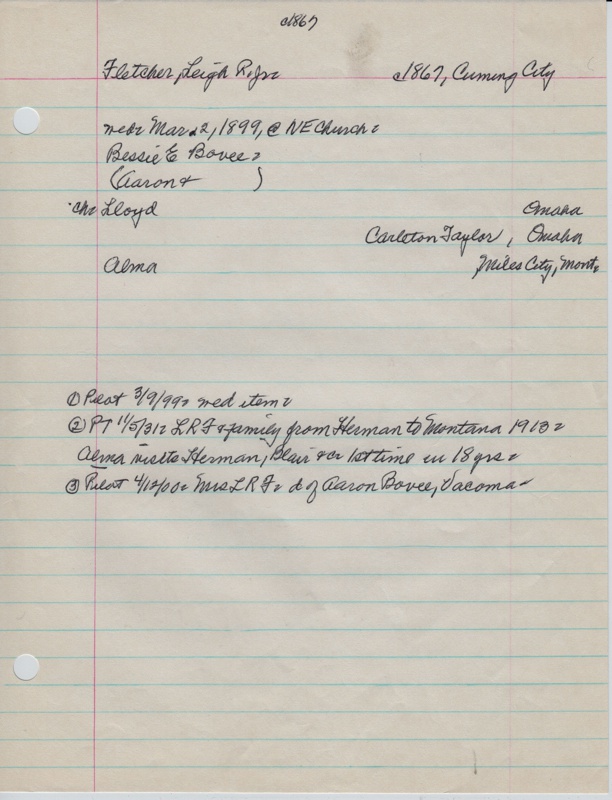 c1867
Fletcher, Leigh R. Jr. c1867, Cuming City
wed. Mar. 2, 1899, @ NE Church.
Bessie E Bovee.
(Aaron + )
ch. Lloyd Omaha
Carleton Taylor, Omaha
Alma Miles City, Mont.
① Pilot 3/9/99. wed item.
② PT 11/5/31. L R F + family from Herman to Montana 1913.
Alma visits Herman, Blair + c 1st time in 18 yrs.
③ Pilot 4/12/00. Mrs L R F. d of Aaron Bovee, Vacoma.